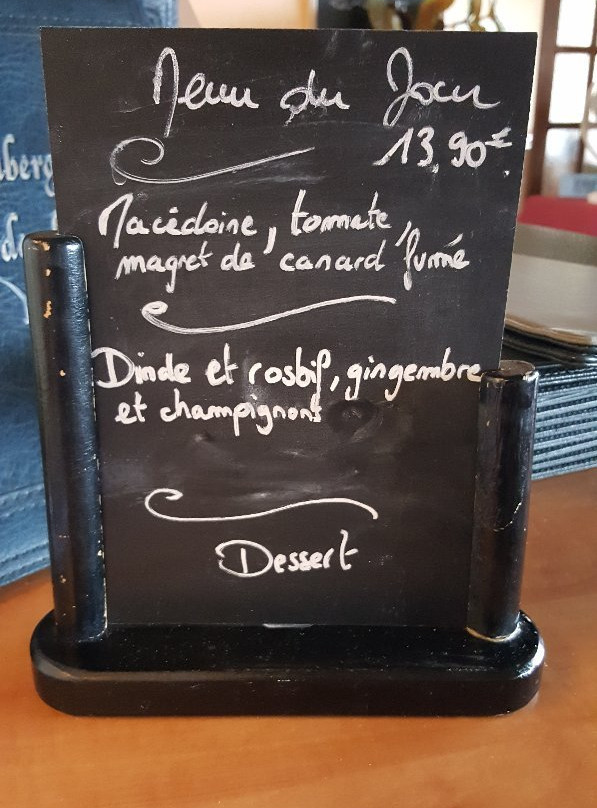 Menu du Jour
13,90€
Macédoine, tommate,
magret de canard fumé
Dinde et rosbif, gingembre
et champignons
Dessert